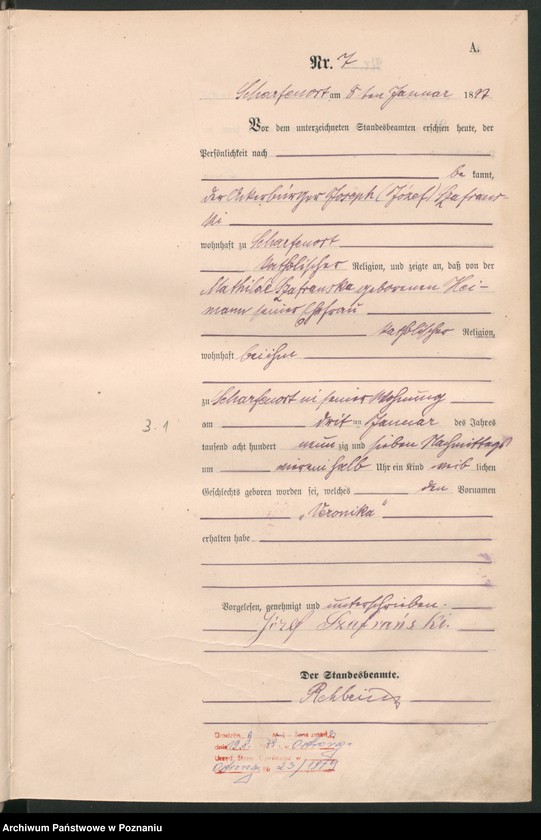 A.
Nr. 7
Scharfenort am 8 ten Januar 1897
Vor dem unterzeichneten Standesbeamten erschien heute, der
Persönlichkeit nach
be kannt,
der Ackerbürger Joseph (Józef) Szafrans-
ki
wohnhaft zu Scharfenort
katholischer Religion, und zeigte an, daß von der
Mathilde Szafranska geborenen Hei-
mann seiner Ehefrau
katholischer Religion,
wohnhaft bei ihm
zu Scharfenort in seiner Wohnung
am dritten Januar des Jahres
3. 1
tausend acht hundert neun zig und sieben Nachmittags
um vier ein halb Uhr ein Kind weib lichen
Geschlechts geboren worden sei, welches den Vornamen
"Veronika"
erhalten habe
Vorgelesen, genehmigt und unterschrieben.
Józef Szafrański.
Der Standesbeamte.
Rehbein
23/1919
Archiwum Państwowe w Poznaniu